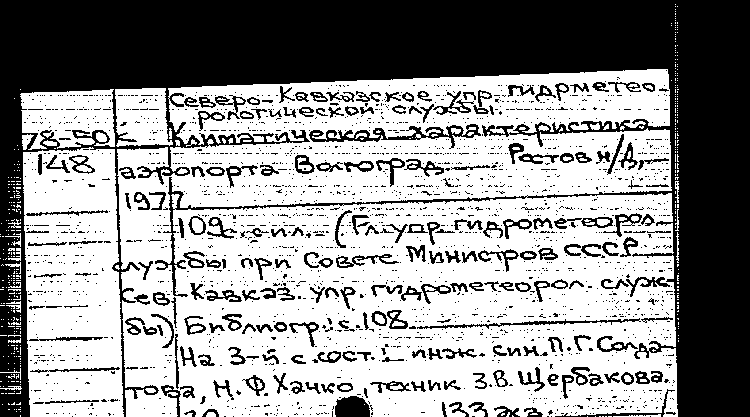 Северо-Кавказское упр. гидрметео-
рологической службы.
78-50к Климатическая характеристика
148 аэропорта Волгоград. Ростов н/Д,
1977.
109с. с ил. - (Гл. упр. гидрометеорол.
службы при Совете Министров СССР
Сев.-Кавказ. упр. гидрометеорол. служ-
бы) Библиогр.: с.108
На 3-й с. сост.: инж. син. П.Г. Солда-
това, Н.Ф. Хачко, техник З.В. Щербакова.
133 экз.